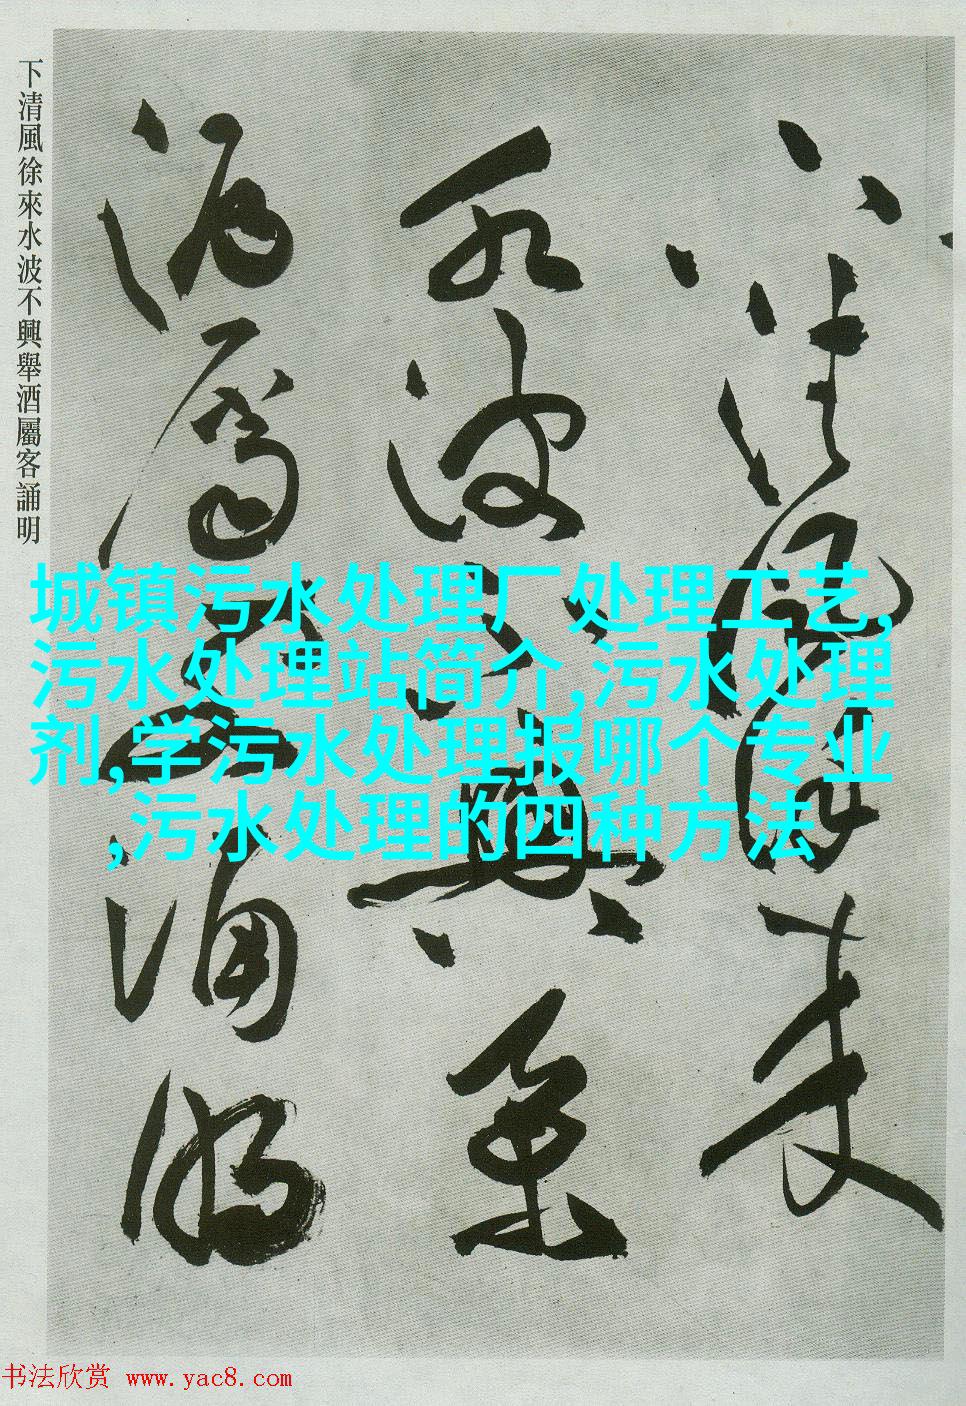 下清風徐來水波不興舉酒屬客誦明
下清風徐來
水波不興舉
酒屬客誦明
城镇污水处理厂处理工艺,
污水处理站简介,污水处理
剂,学污水处理报哪个专业
,污水处理的四种方法
书法欣赏 www.yac8.com